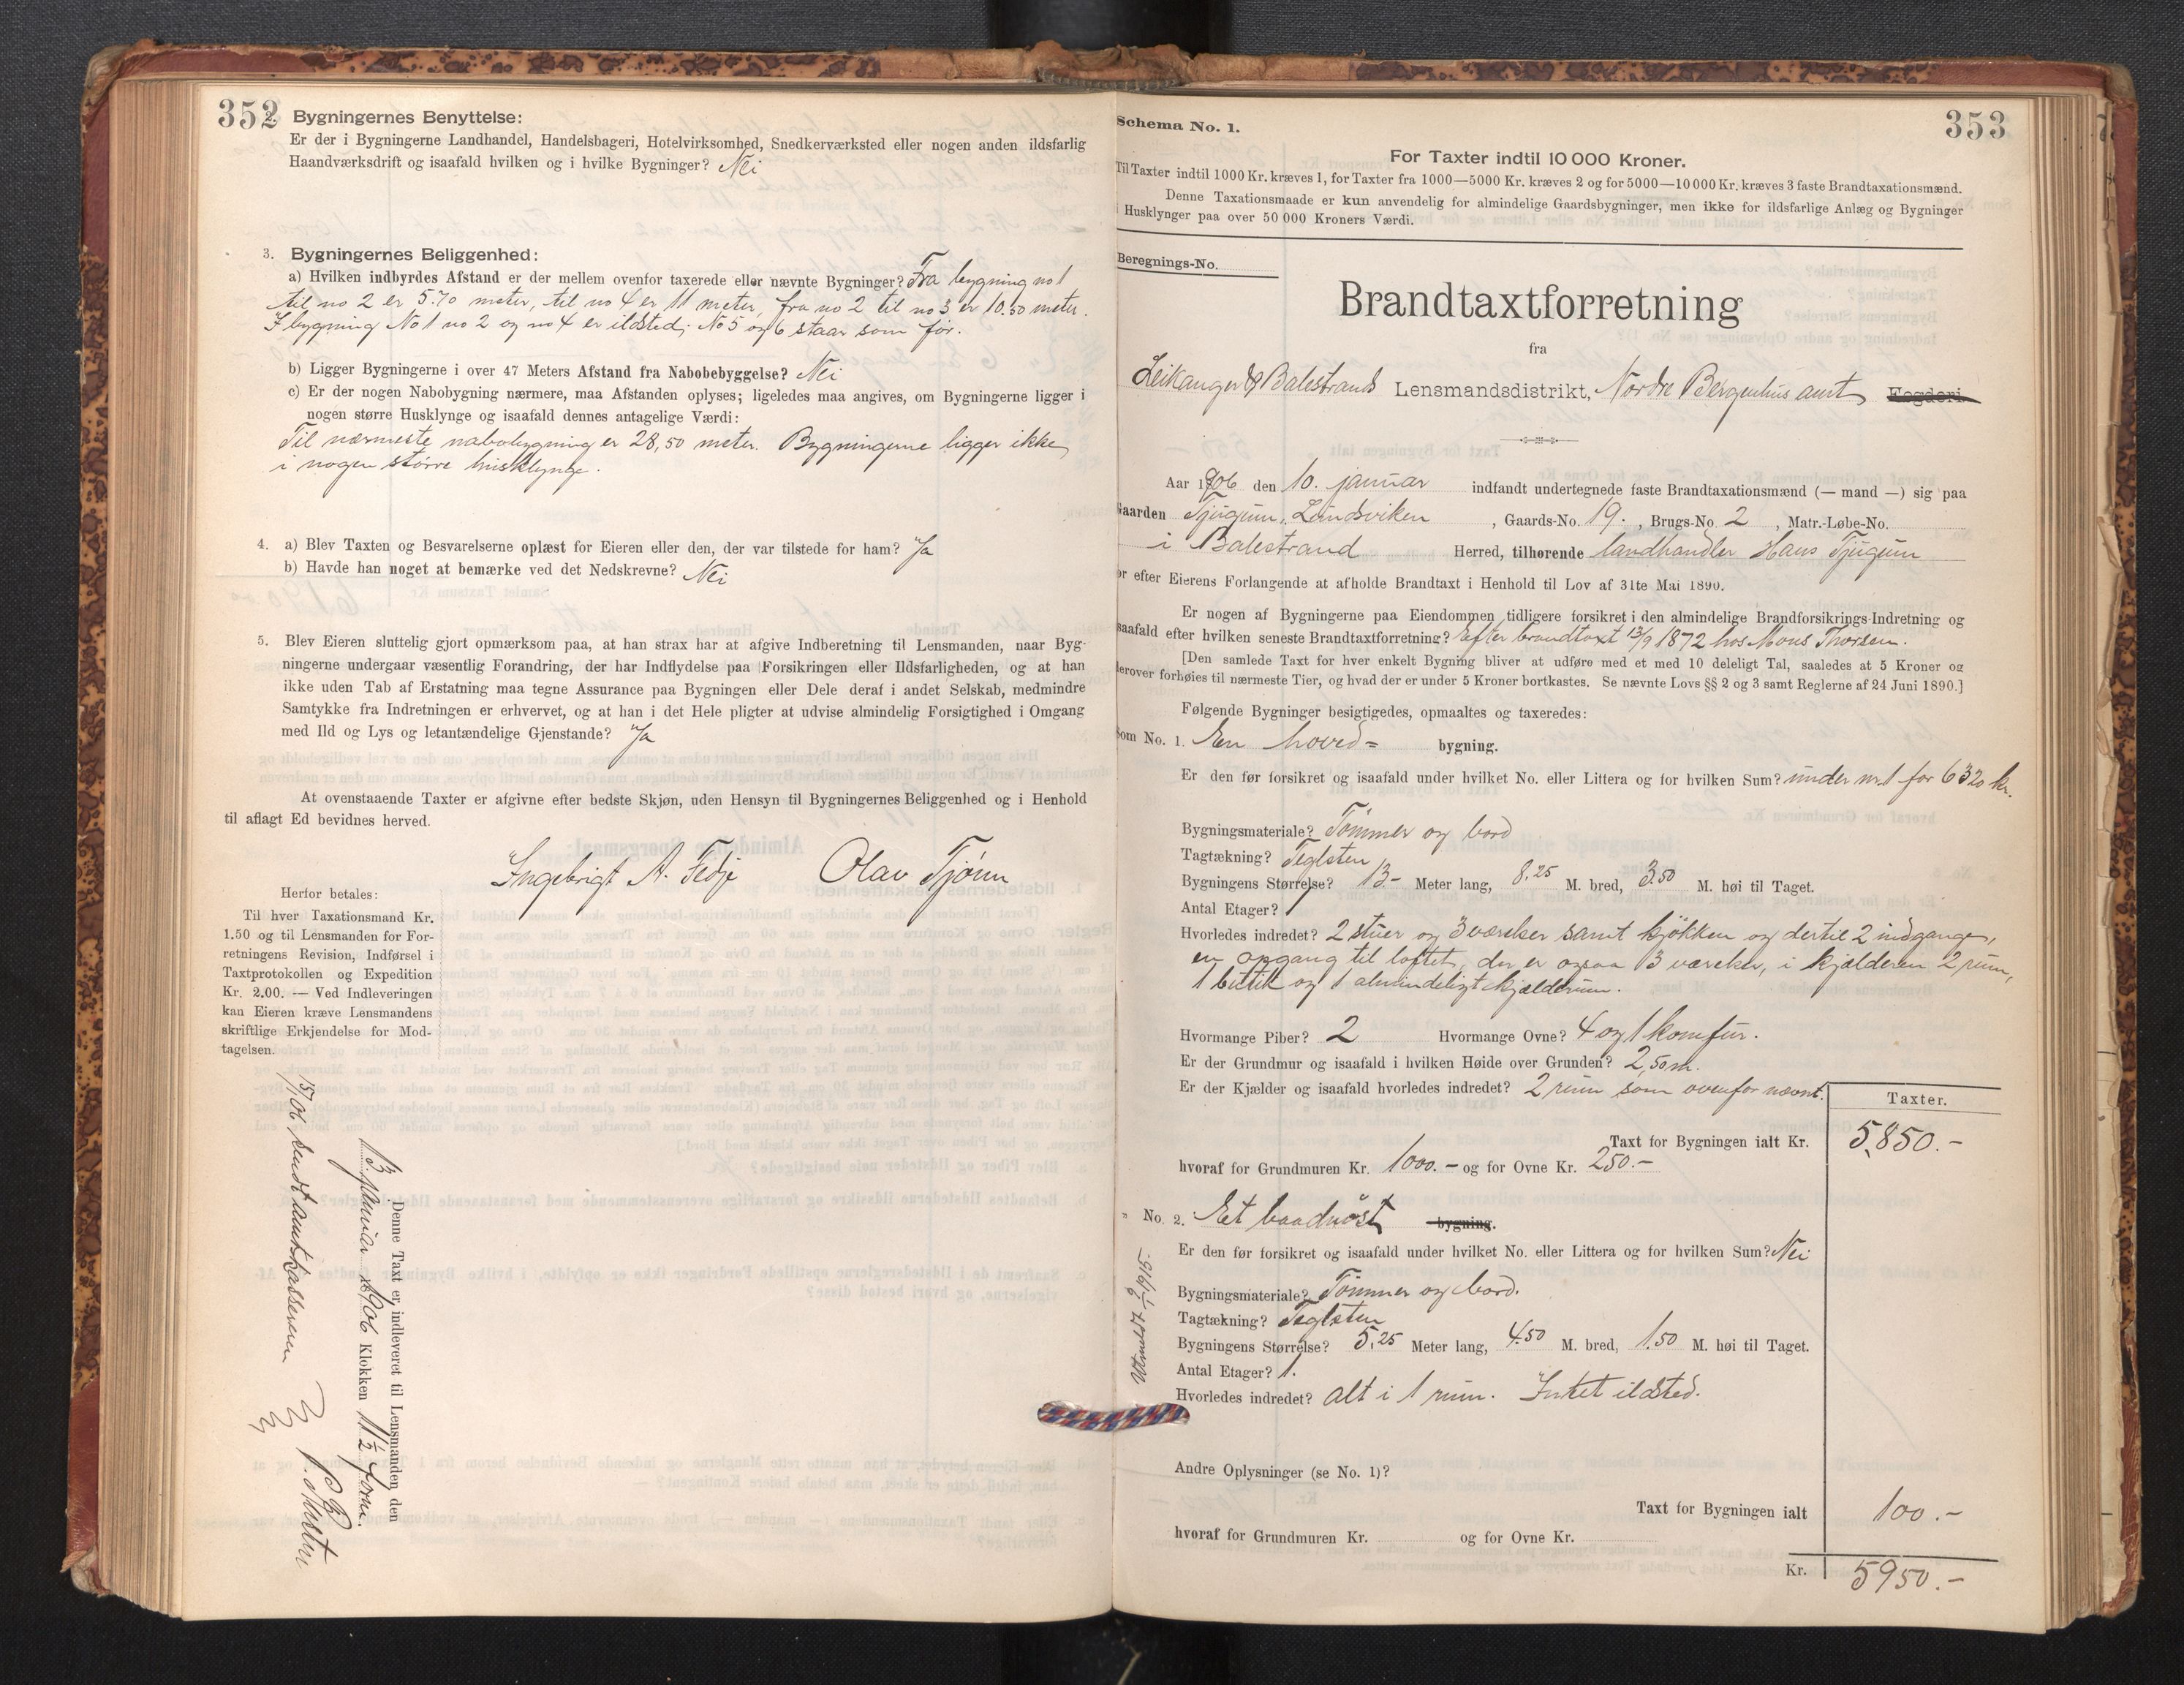 352
2. Bygningernes Benyttelse:
Er der i Bygningerne Landhandel, Handelsbageri, Hotelvirksomhed, Snedkerværksted eller nogen anden ildsfarlig
Haandværksdrift og isaafald hvilken og i hvilke Bygninger? Nei
3. Bygningernes Beliggenhed:
a) Hvilken indbyrdes Afstand er der mellem ovenfor taxerede eller nævnte Bygninger? Fra bygning no 1
til no 2 er 5.70 meter, til no 4 er 11 meter, fra no 2 til no 3 er 10.50 meter.
I bygning No 1 no 2 og no 4 er ildsted; No 5 og 6 staar som før.
b) Ligger Bygningerne i over 47 Meters Afstand fra Nabobebyggelse? Nei
c) Er der nogen Nabobygning nærmere, maa Afstanden oplyses; ligeledes maa angives, om Bygningerne ligger i
nogen større Husklynge og isaafald dennes antagelige Værdi:
Til nærmeste nabobygning er 28,50 meter. Bygningerne ligger ikke
i nogen større husklynge.
4. a) Blev Taxten og Besvarelserne oplæst for Eieren eller den, der var tilstede for ham? Ja
b) Havde han noget at bemærke ved det Nedskrevne? Nei
5. Blev Eieren sluttelig gjort opmærksom paa, at han strax har at afgive Indberetning til Lensmanden, naar Byg-
ningerne undergaar væsentlig Forandring, der har Indflydelse paa Forsikringen eller Ildsfarligheden, og at han
ikke uden Tab af Erstatning maa tegne Assurance paa Bygningen eller Dele deraf i andet Selskab, medmindre
Samtykke fra Indretningen er erhvervet, og at han i det Hele pligter at udvise almindelig Forsigtighed i Omgang
med Ild og Lys og letantændelige Gjenstande? Ja
At ovenstaaende Taxter er afgivne efter bedste Skjøn, uden Hensyn til Bygningernes Beliggenhed og i Henhold
til aflagt Ed bevidnes herved.
Ingebrigt A. Fedje Olav Tjønn
Herfor betales:
Til hver Taxationsmand Kr.
1.50 og til Lensmanden for For-
retningens Revision, Indførsel i
Taxtprotokollen og Expedition
Kr. 2.00. — Ved Indleveringen
kan Eieren kræve Lensmandens
skriftlige Erkjendelse for Mod-
tagelsen.
Denne Taxt er indleveret til Lensmanden den
13 januar 1906 Klokken 11½ form.
15/1 06 sendt amtskasseren
353
Schema No. 1.
For Taxter indtil 10 000 Kroner.
Til Taxter indtil 1000 Kr. kræves 1, for Taxter fra 1000—5000 Kr. kræves 2 og for 5000—10 000 Kr. kræves 3 faste Brandtaxationsmænd.
Denne Taxationsmaade er kun anvendelig for almindelige Gaardsbygninger, men ikke for ildsfarlige Anlæg og Bygninger
i Husklynger paa over 50 000 Kroners Værdi.
Beregnings-No.
Brandtaxtforretning
fra
Leikanger & Balestrand Lensmandsdistrikt, Nordre Bergenhus amt Fogderi
Aar 1906 den 10. januar indfandt undertegnede faste Brandtaxationsmænd (— mand —) sig paa
Gaarden Tjugum, Landsviken, Gaards-No. 19., Brugs-No. 2, Matr.-Løbe-No.
i Balestrand Herred, tilhørende landhandler Hans Tjugum
for efter Eierens Forlangende at afholde Brandtaxt i Henhold til Lov af 31te Mai 1890.
Er nogen af Bygningerne paa Eiendommen tidligere forsikret i den almindelige Brandforsikrings-Indretning og
isaafald efter hvilken seneste Brandtaxtforretning? Efter brandtaxt 13/9 1872 hos Mons Thorsen.
[Den samlede Taxt for hver enkelt Bygning bliver at udføre med et med 10 deleligt Tal, saaledes at 5 Kroner og
derover forhøies til nærmeste Tier, og hvad der er under 5 Kroner bortkastes. Se nævnte Lovs §§ 2 og 3 samt Reglerne af 24 Juni 1890.]
Følgende Bygninger besigtigedes, opmaaltes og taxeredes:
Som No. 1. En hoved= bygning.
Er den før forsikret og isaafald under hvilket No. eller Littera og for hvilken Sum? under nr 1 for 6320 kr.
Bygningsmateriale? Tømmer og bord
Tagtækning? Teglsten
Bygningens Størrelse? 13– Meter lang, 8.25 M. bred, 3.50 M. høi til Taget.
Antal Etager? 1
Hvorledes indredet? 2 stuer og 3 værelser samt kjøkken og dertil 2 indgange,
en opgang til loftet, der er ogsaa 3 værelser, i kjælderen 2 rum,
1 butik og 1 almindeligt kjælderrum.
Hvormange Piber? 2 Hvormange Ovne? 4 og 1 komfur.
Er der Grundmur og isaafald i hvilken Høide over Grunden? 2,50 m.
Er der Kjælder og isaafald hvorledes indredet? 2 rum som ovenfor nævnt.
Taxter.
Taxt for Bygningen ialt Kr. 5,850.–
hvoraf for Grundmuren Kr. 1000.– og for Ovne Kr. 250.–
" No. 2. Et baadnøst bygning.
Er den før forsikret og isaafald under hvilket No. eller Littera og for hvilken Sum? Nei
Bygningsmateriale? Tømmer og bord.
Tagtækning? Teglsten
Bygningens Størrelse? 5,25 Meter lang, 4.50 M. bred, 1.50 M. høi til Taget.
Antal Etager? 1.
Hvorledes indredet? alt i 1 rum. Intet ildsted.
Andre Oplysninger (se No. 1)?
Taxt for Bygningen ialt 100.–
hvoraf for Grundmuren Kr. og for Ovne Kr.
Kr. 5950.–